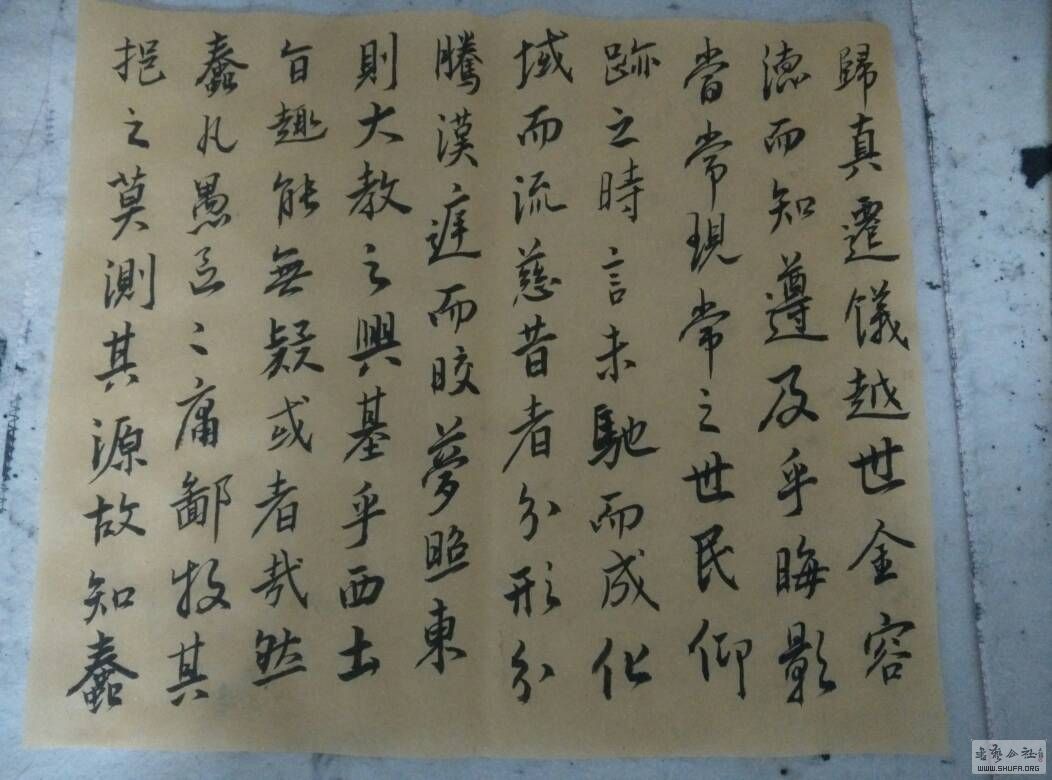 歸真遷儀越世金容
德而知遵及乎晦影
當常現常之世民仰
跡之時言未馳而成化
域而流慈昔者分形分
騰漢庭而皎夢照東
則大教之興基乎西土
旨趣能無疑或者哉然
蠢凡愚區〻庸鄙投其
挹之莫測其源故知蠢
书艺公社
WWW.SHUFA.ORG